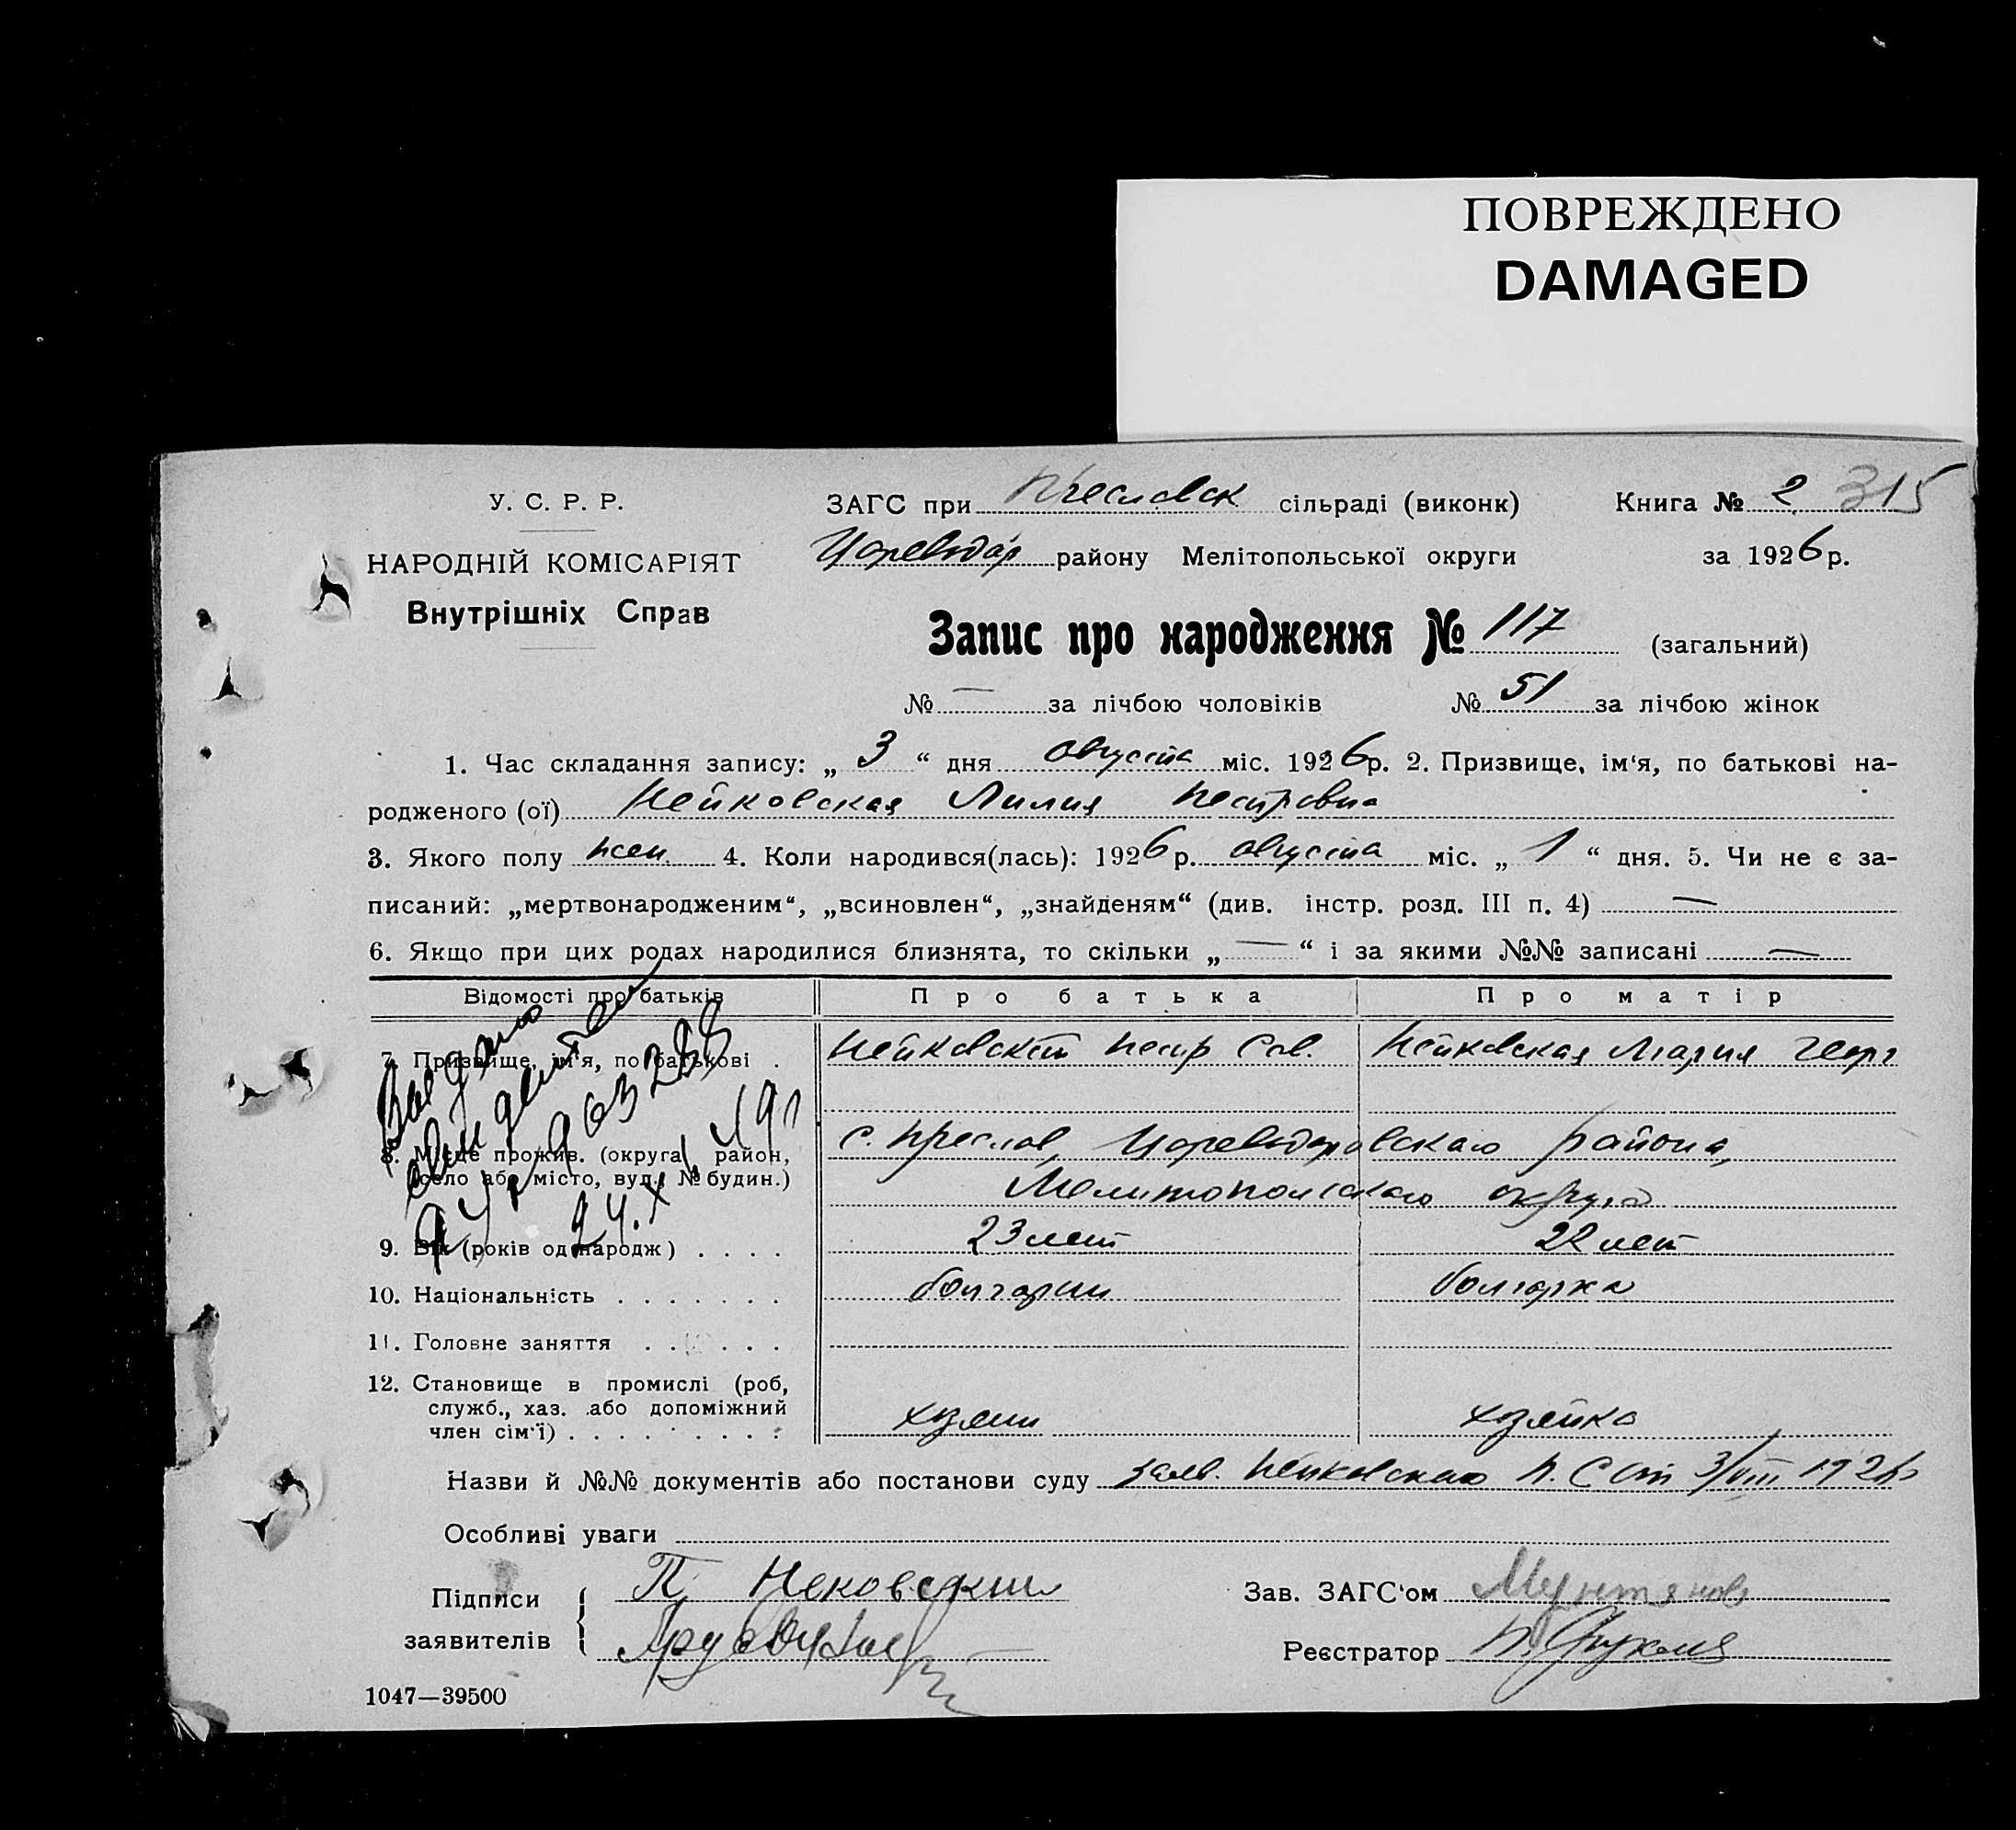 ПОВРЕЖДЕНО
DAMAGED
У. С. Р. Р.
НАРОДНІЙ КОМІСАРІЯТ
Внутрішніх Справ
ЗАГС при Преславск сільраді (виконк)
Книга № 2 315
Царевдар району Мелітопольської округи
за 1926 р.
Запис про народження № 117 (загальний)
№ — за лічбою чоловіків № 51 за лічбою жінок
1. Час складання запису: „ 3 “ дня августа міс. 1926 р. 2. Призвище, ім‘я, по батькові на-
родженого (ої) Нейковская Лилия Петровна
3. Якого полу жен. 4. Коли народився(лась): 1926 р. августа міс. „ 1 “ дня. 5. Чи не є за-
писаний: „мертвонародженим“, „всиновлен“, „знайденям“ (див. інстр. розд. III п. 4) —
6. Якщо при цих родах народилися близнята, то скільки „ — “ і за якими №№ записані —
Відомості про батьків Про батька Про матір
7. Призвище, ім‘я, по батькові . Нейковский Петр Сав. Нейковская Мария Георг
8. Місце прожив. (округа, район, с. Преслав, Царевдаровского района,
село або місто, вуд., № будин.) Мелитопольского округа
9. Вік (років од народж) . . . . 23 лет 22 лет
10. Національність . . . . . . . болгарин болгарка
11. Головне заняття . . . . . .
12. Становище в промислі (роб,
служб., хаз. або допоміжний
член сім‘ї) . . . . . . . . . : хозяин хозяйка
Выдано
свидетел
24.X
Назви й №№ документів або постанови суду заяв. Нейковского П. С от 3/VIII 1926
Особливі уваги
Підписи
заявителів
П. Нековский
Зав. ЗАГС‘ом
Реєстратор
1047—39500